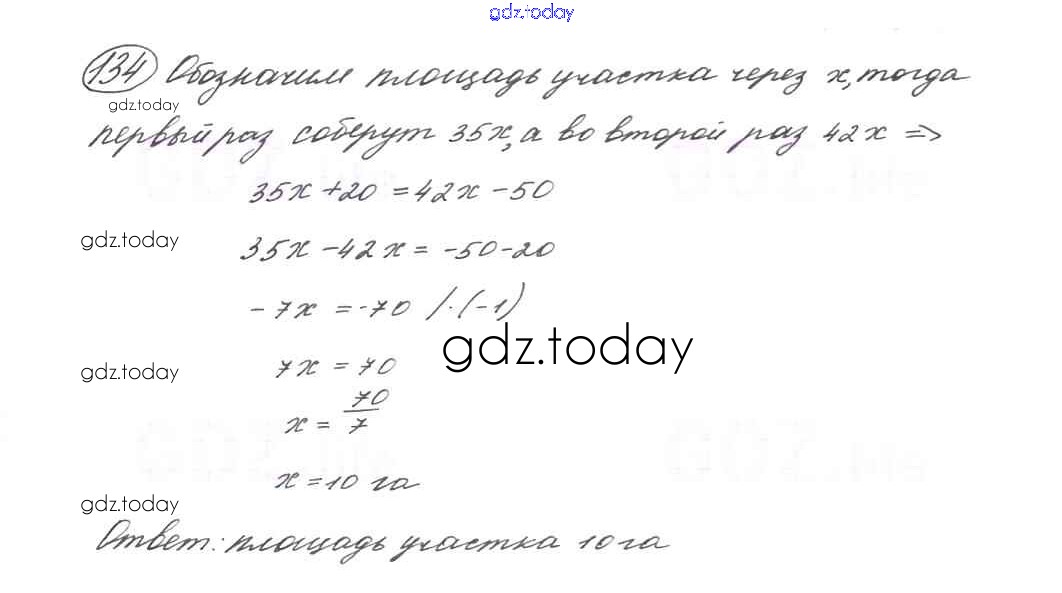 gdz.today
134 Обозначим площадь участка через x, тогда
gdz.today
первый раз соберут 35x, а во второй раз 42x =>
GDZ.Me GDZ.Me
35x + 20 = 42x - 50
gdz.today
35x - 42x = -50 - 20
-7x = -70 /·(-1)
gdz.today
gdz.today
7x = 70
x = 70/7
GDZ.Me GDZ.Me
x = 10 га
gdz.today
Ответ: площадь участка 10 га